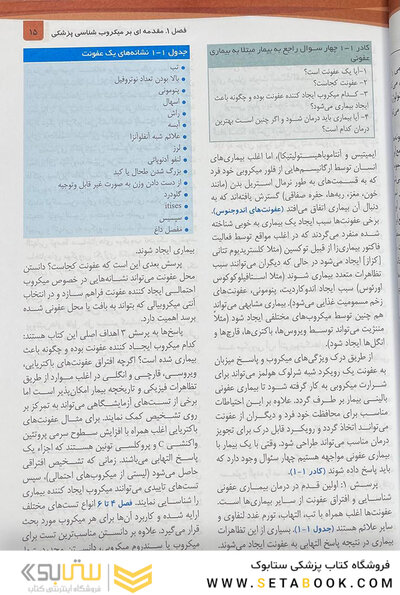 فصل ۱. مقدمه ای بر میکروب شناسی پزشکی
۱۵
کادر ۱-۱ چهار سوال راجع به بیمار مبتلا به بیماری
عفونی
۱- آیا یک عفونت است؟
۲- عفونت کجاست؟
۳- کدام میکروب ایجاد کننده عفونت بوده و چگونه باعث
ایجاد بیماری می‌شود؟
۴- آیا بیماری باید درمان شود و اگر چنین است بهترین
درمان کدام است؟
ایمپتیس و آنتاموباهیستولیتیکا)، اما اغلب بیماری‌های
انسان توسط ارگانیسم‌هایی از فلور میکروبی خود فرد
که به قسمت‌های به طور نرمال استریل بدن (مانند
خون، مغز، ریه‌ها، حفره صفاقی) گسترش یافته‌اند که به
دنبال آن بیماری اتفاق می‌افتد (عفونت‌های اندوجنوس).
برخی عفونت‌ها سبب ایجاد یک بیماری به خوبی شناخته
شده منفرد می‌گردند که در اغلب مواقع توسط فعالیت
فاکتور بیماری‌زا از قبیل توکسین (مثلا کلستریدیوم تتانی
[کزاز] ایجاد می‌شود در حالی که دیگران می‌توانند سبب
تظاهرات متعدد بیماری شوند (مثلا استافیلوکوکوس
اورئوس) سبب ایجاد اندوکاردیت، پنومونی، عفونت‌های
زخم مسمومیت غذایی می‌شود). بیماری مشابهی می‌تواند
هم چنین توسط میکروب‌های مختلفی ایجاد شود (مثلا
مننژیت می‌تواند توسط ویروس‌ها، باکتری‌ها، قارچ‌ها و
انگل‌ها ایجاد شود).
از طریق درک ویژگی‌های میکروب و پاسخ میزبان
به عفونت یک رویکرد شبه شرلوک هولمز می‌تواند در
شرارت میکروبی به کار گرفته شود تا بیماری عفونی
بالینی بیمار بر طرف گردد. علاوه بر این احتیاطات
مناسب برای محافظت خود فرد و دیگران از عفونت
می‌تواند اتخاذ گردد و رویکرد قابل درک برای تجویز
درمان مناسب می‌تواند طراحی شود. وقتی با یک بیمار با
بیماری عفونی مواجهه هستیم چهار سئوال وجود دارد که
باید پاسخ داده شوند (کادر ۱-۱).
پرسش ۱: اولین قدم در درمان بیماری عفونی
شناسایی و افتراق عفونت از سایر بیماری‌ها است.
عفونت‌ها اغلب همراه با تب، التهاب، تورم غدد لنفاوی و
سایر علائم هستند (جدول ۱-۱). بسیاری از این تظاهرات
بیماری در نتیجه پاسخ التهابی به عفونت ایجاد می‌شوند.
جدول ۱-۱ نشانه‌های یک عفونت
تب
بالا بودن تعداد نوتروفیل
پنومونی
اسهال
راش
آبسه
علائم شبه آنفلوآنزا
لرز
لنفو آدنوپاتی
بزرگ شدن طحال یا کبد
از دست دادن وزن به صورت غیر قابل وتوجیه
گلودرد
itises
سپسیس
مفصل داغ
بیماری ایجاد شوند.
پرسش بعدی این است که عفونت کجاست؟ دانستن
محل عفونت می‌تواند نشانه‌هایی در خصوص میکروب
احتمالی ایجاد کننده عفونت فراهم سازد و در انتخاب
آنتی میکروبیالی که بتواند به بافت یا محل عفونی شده
برسد اهمیت دارد.
پاسخ‌ها به پرسش ۳ اهداف اصلی این کتاب هستند:
کدام میکروب ایجاد کننده عفونت بوده و چگونه باعث
بیماری شده است؟ اگرچه افتراق عفونت‌های باکتریایی،
ویروسی، قارچی و انگلی در اغلب موارد از طریق
تظاهرات فیزیکی و تاریخچه بیمار امکان‌پذیر است اما
برخی از تست‌های آزمایشگاهی می‌تواند به تمرکز بر
روی تشخیص کمک نمایند. برای مثال عفونت‌های
باکتریایی اغلب همراه با افزایش سطوح سرمی پروتئین
واکنشی C و پروکلسی تونین هستند که اجزاء یک
پاسخ التهابی می‌باشند. زمانی که تشخیص افتراقی
حاصل می‌شود (لیستی از میکروب‌های احتمالی)، سپس
تست‌های تاییدی می‌توانند میکروب ایجاد کننده بیماری
را شناسایی نمایند. فصل ۴ تا ۶ انواع تست‌های مختلف
ارایه شده و کاربرد آن‌ها برای هر میکروب مورد بحث
قرار می‌گیرد. علاوه بر دانستن مناسب‌ترین تست برای
فروشگاه کتاب پزشکی ستابوک
WWW.SETABOOK.COM
ستابوک
فروشگاه اینترنتی کتاب